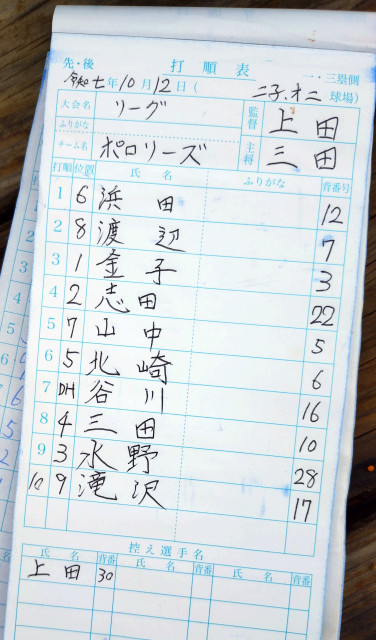 打順表
先・後 一・三塁側
令和七年10月12日( 二子、オニ 球場)
大会名 リーグ 監督 上田
ふりがな
チーム名 ポロリーズ 主将 三田
打順 位置 氏名 ふりがな 背番号
1 6 浜田 12
2 8 渡辺 7
3 1 金子 3
4 2 志田 22
5 7 山中 5
6 5 北崎 6
7 DH 谷川 16
8 4 三田 10
9 3 水野 28
10 9 滝沢 17
控え選手名
氏名 背番 氏名 背番 氏名 背番
上田 30